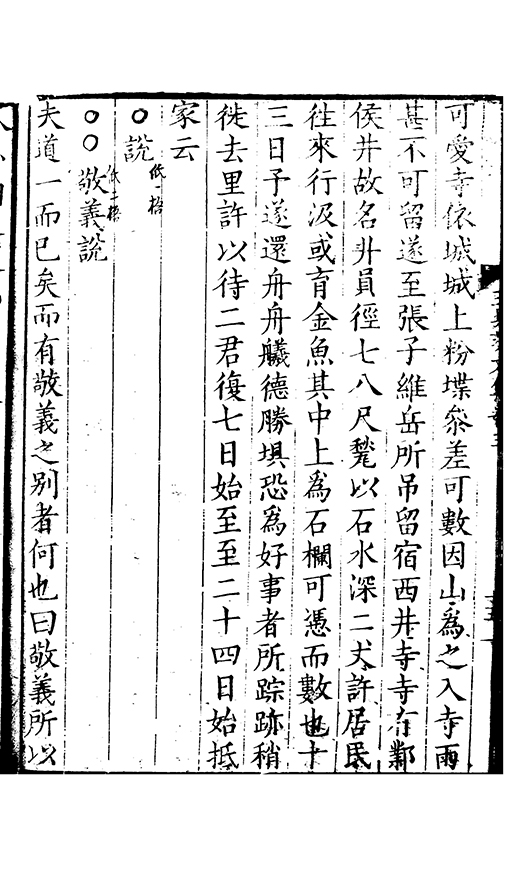 可愛寺依城城上粉堞參差可數因山為之入寺雨
甚不可留遂至張子維岳所吊留宿西井寺寺有鄴
侯井故名井員徑七八尺甃以石水深二丈許居民
往來行汲或育金魚其中上為石欄可憑而數也十
三日予遂還舟舟艤德勝埧恐為好事者所踪跡稍
徙去里許以待二君復七日始至至二十四日始抵
家云
○說 低一格
○○敬義說 低二格
夫道一而已矣而有敬義之別者何也曰敬義所以